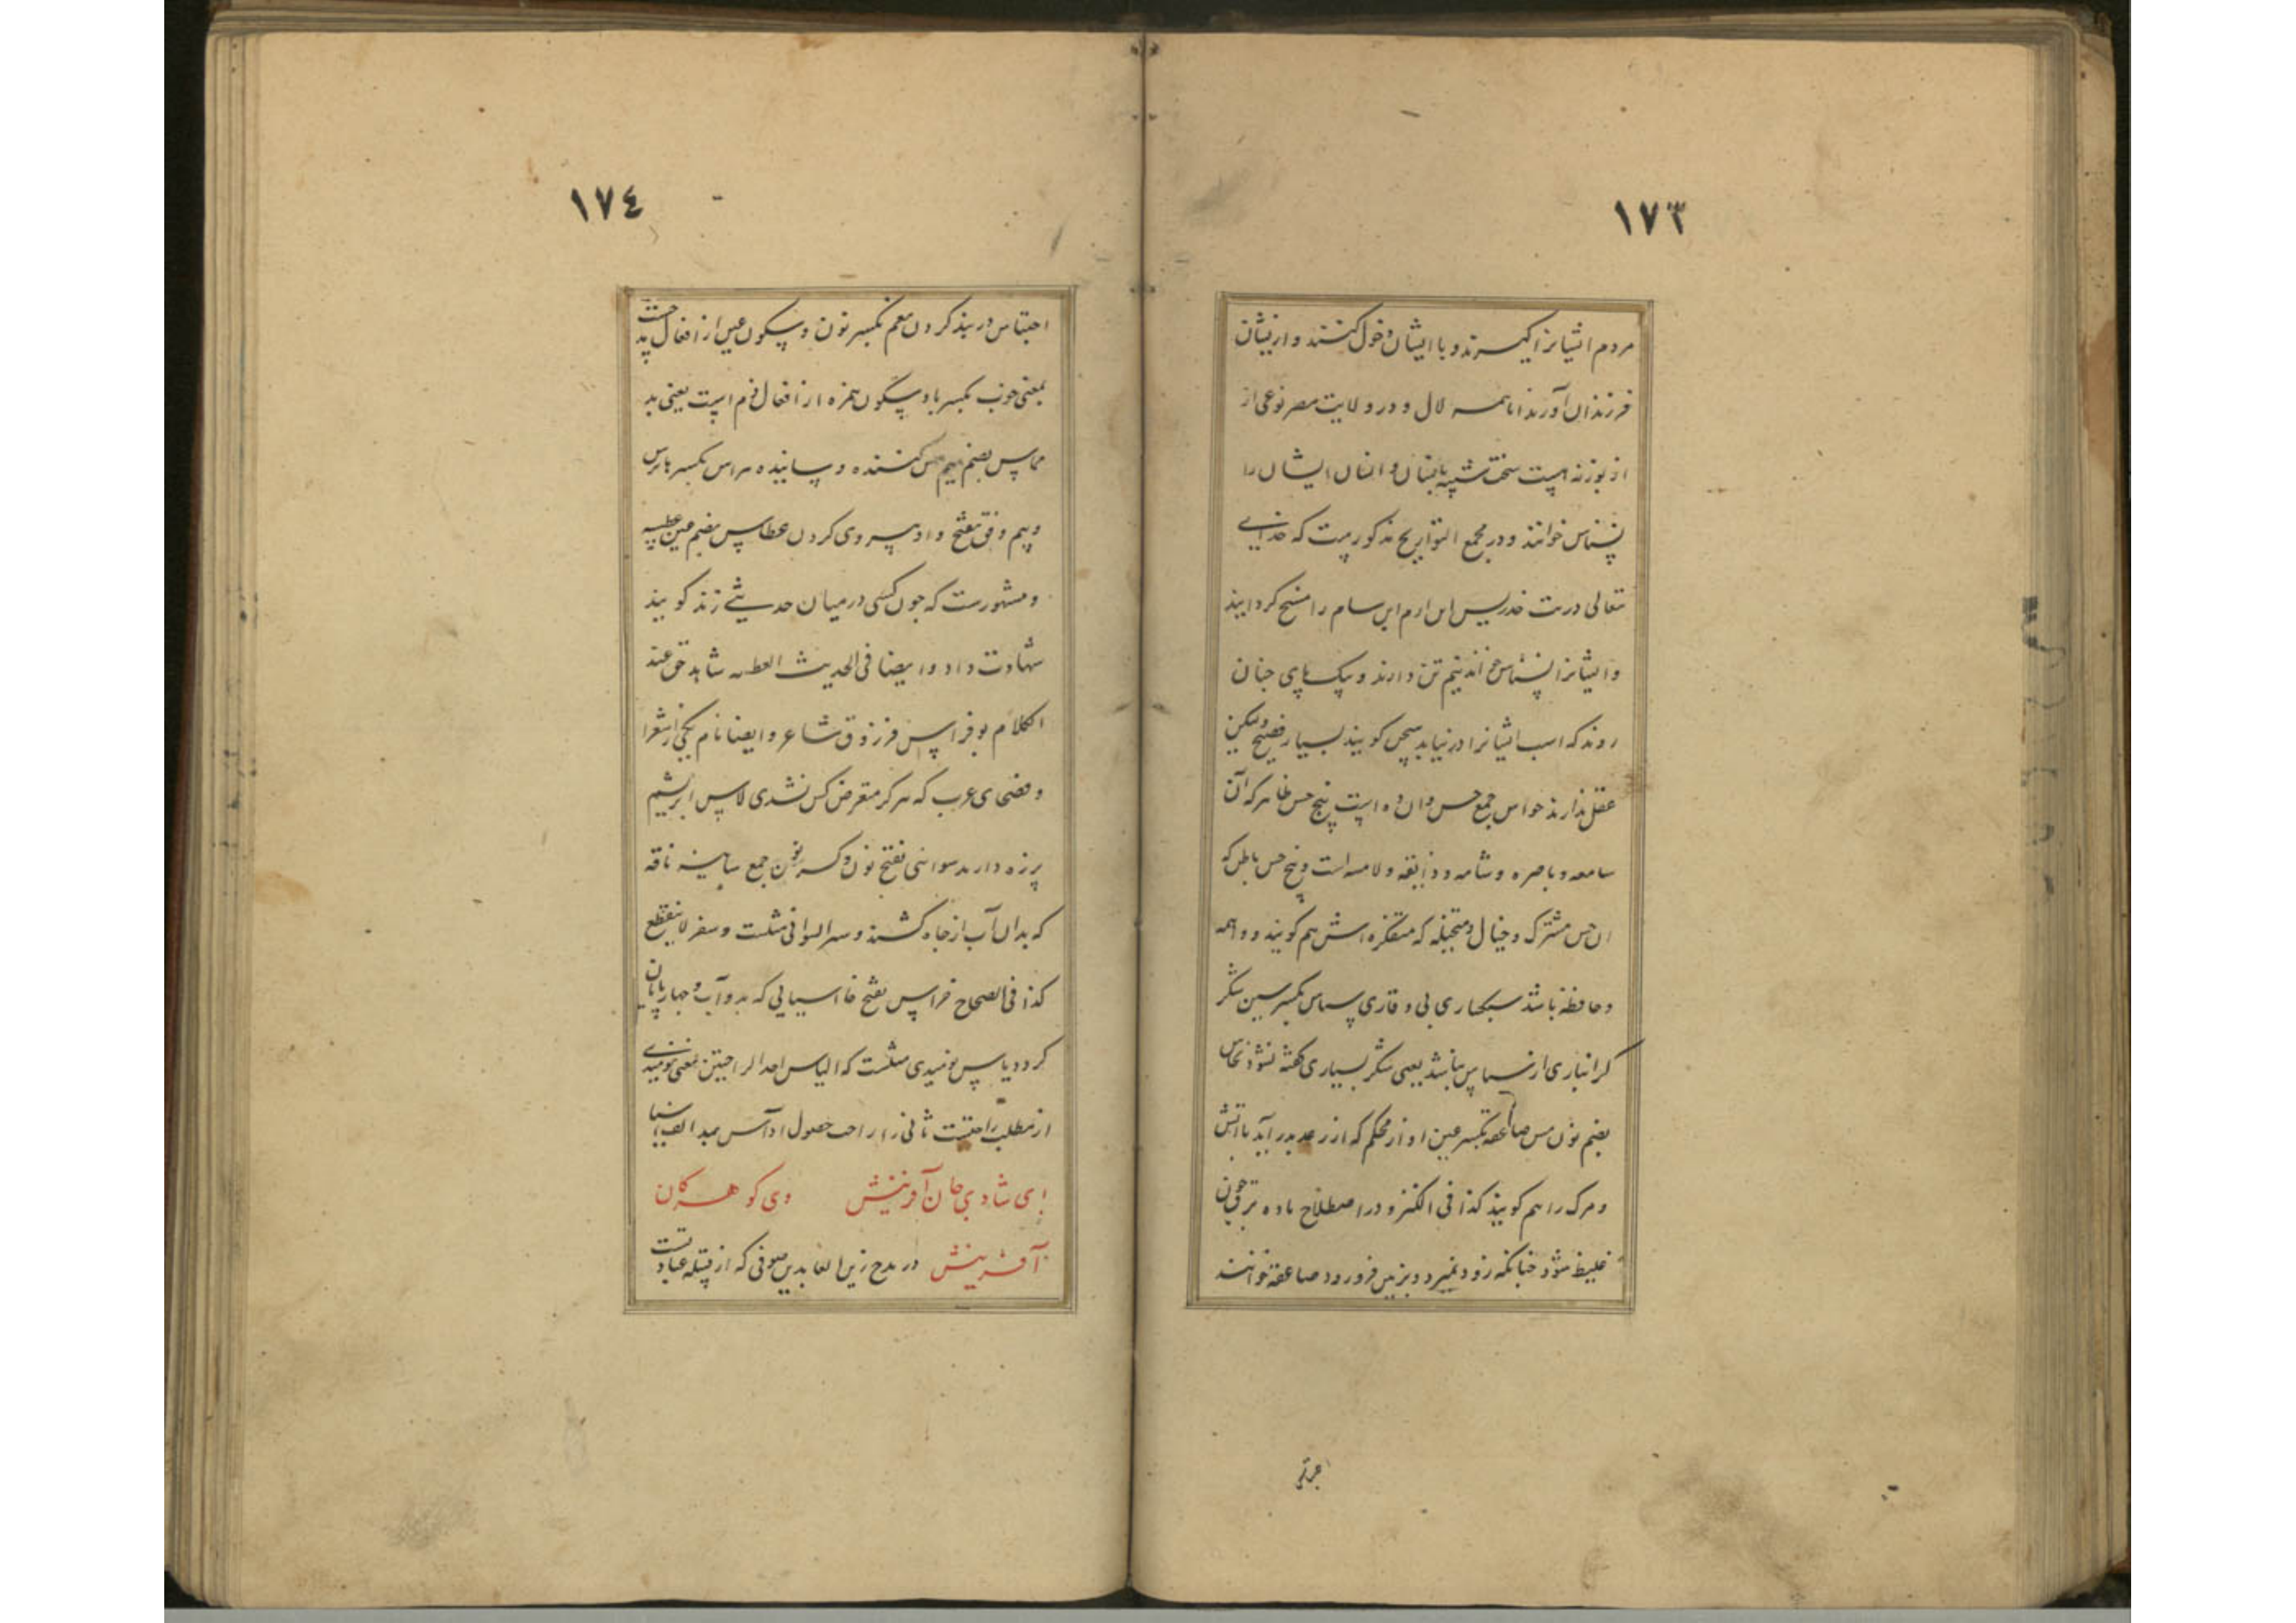 ١٧٣
مردم ایشانرا گیرند و با ایشان دخول کنند و ازیشان
فرزندان آورند اما همه لال و در ولایت مصر نوعی از
از بوزنه است سخت شبیه بانسان و انسان ایشان را
نسناس خوانند و در مجمع التواریخ مذکورست که خدای
تعالی درست خدریس ابن ارم ابن سام را مسخ کردانید
و ایشانرا نسناس خوانند نیم تن دارند و یک پای چنان
روند که اسب ایشانرا درنیابد سخن کویند بسیار فصیح ولیکن
عقل ندارند حواس جمع حس و ان ده است پنج حس ظاهر که آن
سامعه و باصره و شامه و ذایقه و لامسه است و پنج حس باطن که
ان حس مشترک و خیال و متخیله که متفکره اش هم کویند و واهمه
و حافظه باشد سبکساری بی وقاری سپاس بکسر سین شکر
کرانباری از سپاس باشد یعنی شکر بسیاری کفته نشود نحاس
بضم نون مس صاعقه بکسر عین اواز محکم که از رعد بدر آید با آتش
و مرک را هم کویند کذا فی الکنز و در اصطلاح ماده ترقی چون
غلیظ شود چنانکه زود نمیرد و بزمین فرو رود صاعقه خوانند
١٧٤
احتباس در بند کردن نعم بکسر نون و سکون عین از افعال مدحست
بمعنی خوب بکسر با و سکون همزه از افعال ذم است یعنی بد
مماس بضم میم مس کننده و ساینده هراس بکسر ها ترس
و بیم وفق بفتح واو پیروی کردن عطاس بضم عین عطسه
و مشهورست که چون کسی در میان حدیثی زند کویند
شهادت داد و ایضا فی الحدیث العطسه شاهد حق عند
الکلام بوفراس فرزدق شاعر و ایضا نام یکی از شعرا
و فصحای عرب که هرکز متعرض کس نشدی لاس ابریشم
پرزه دارند سوانی بفتح نون و کسر نون جمع سانیه ناقه
که بدان آب از چاه کشند و سیر السوانی مثلست و سفر لاینقطع
کذا فی الصحاح خراس بفتح خا اسیایی که بدو آب و چهارپایان
کردد یاس نومیدی مثلست که الیاس احد الراحتین یعنی نومیدی
از مطلب راحتیست ثانی را راحت حصول او آس بمد الف اسیا
ای شادی جان آفرینش وی کوهر کان
آفرینش در مدح زین العابدین صوفی که از قبله عبادتست